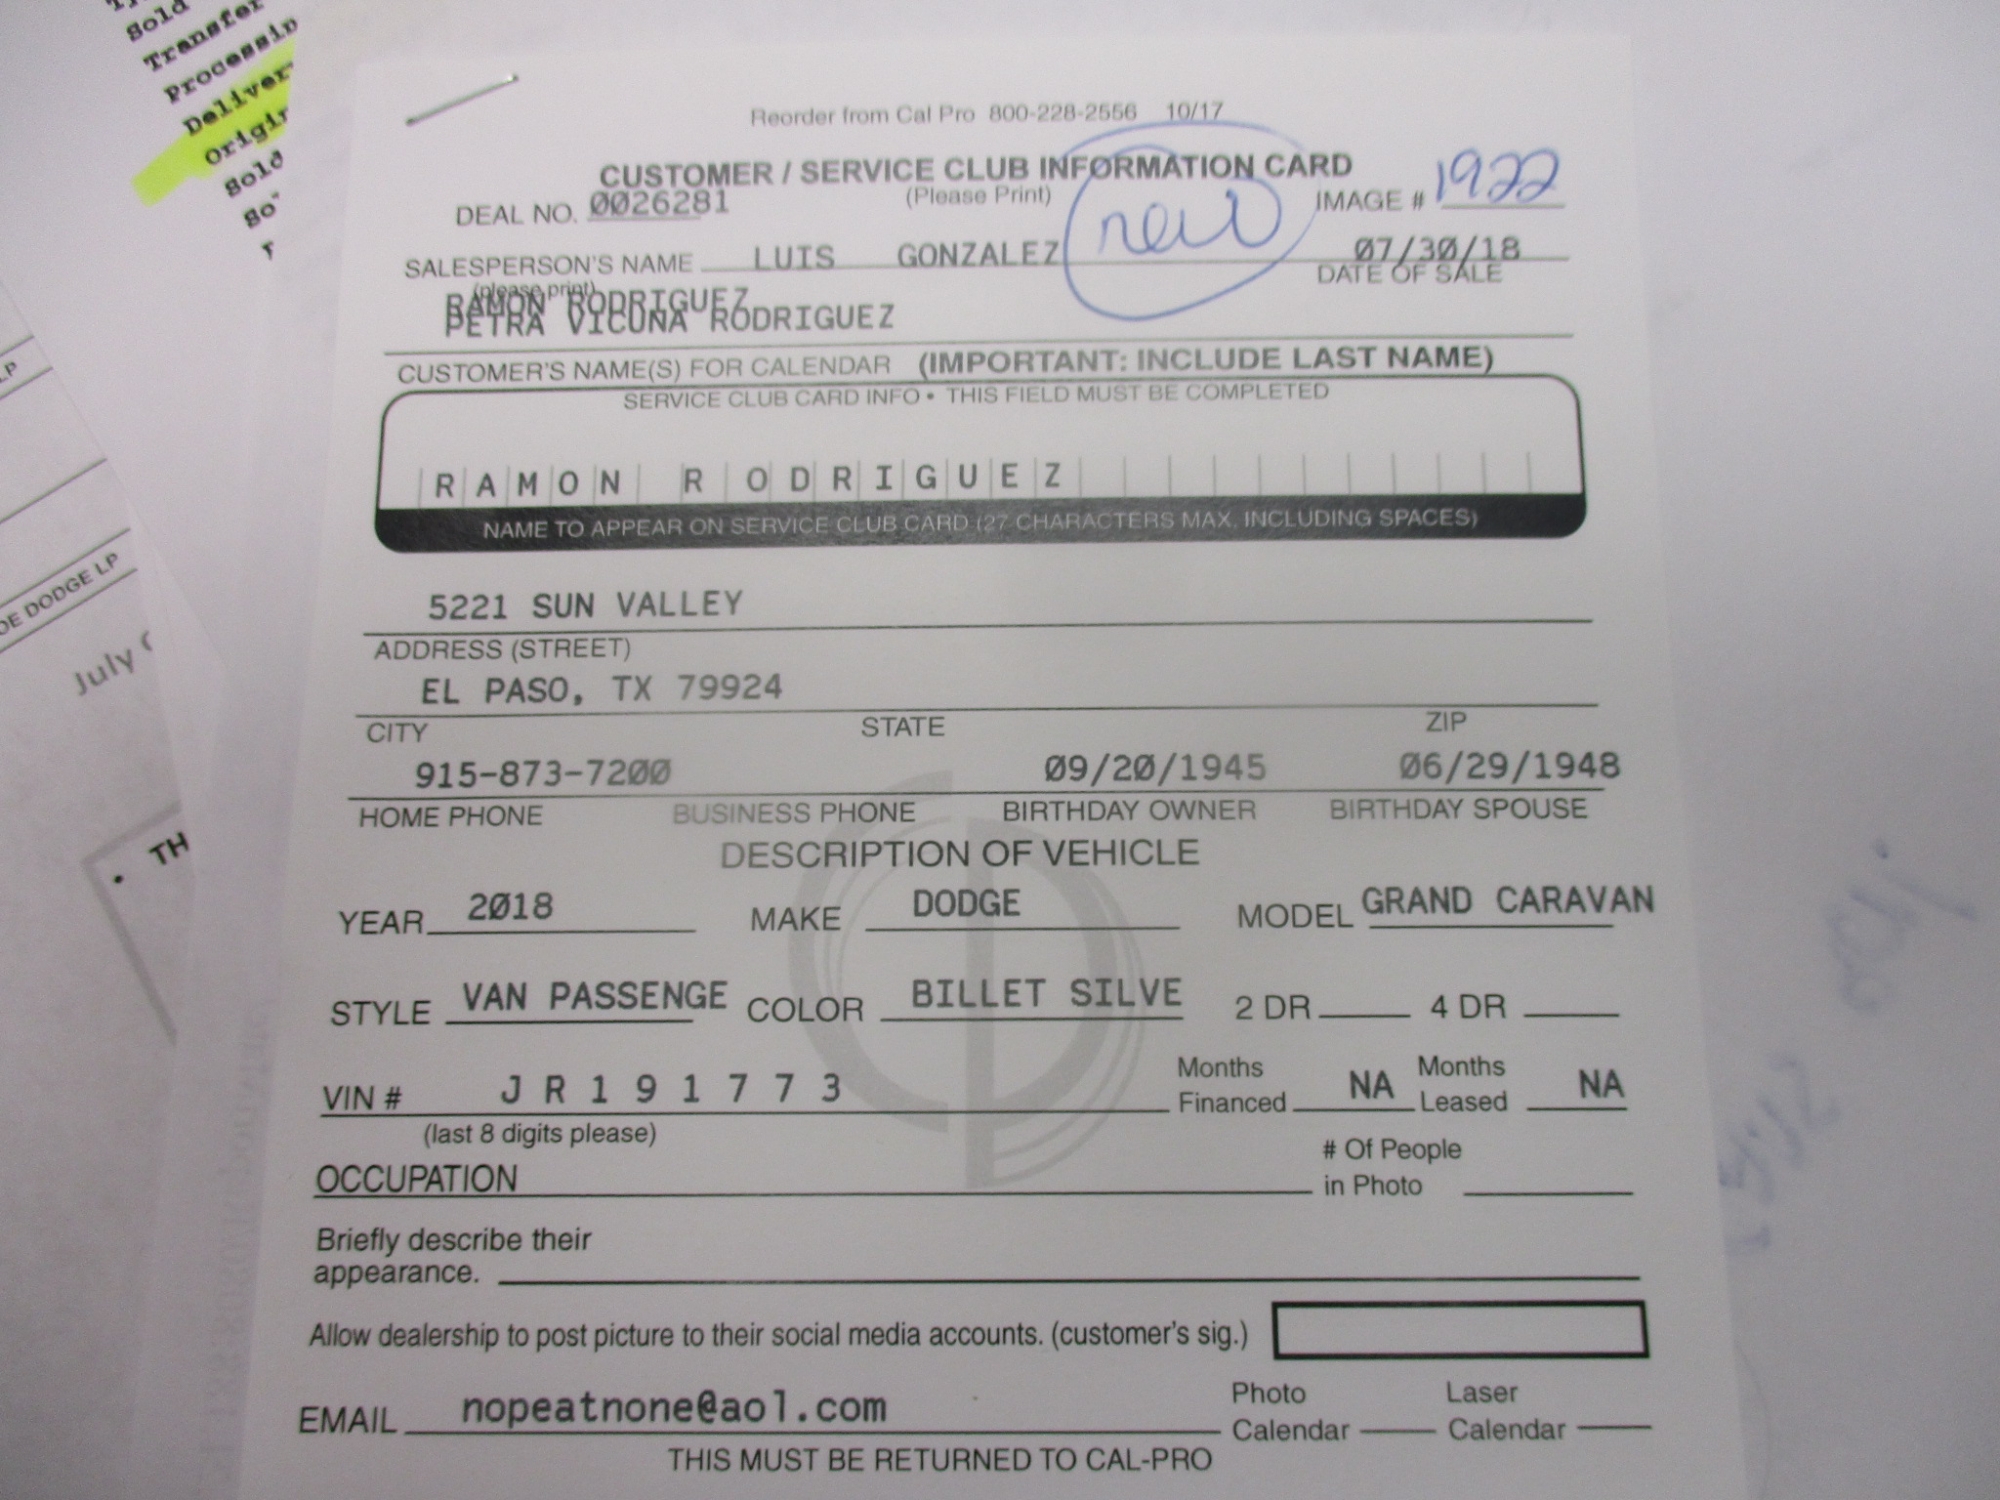 Sold
Transfer
Processin
Deliver
Origin
Sold
So
Reorder from Cal Pro 800-228-2556 10/17
CUSTOMER / SERVICE CLUB INFORMATION CARD
DEAL NO. 0026281 (Please Print) new IMAGE # 1922
SALESPERSON'S NAME LUIS GONZALEZ 07/30/18
(please print) DATE OF SALE
RAMON RODRIGUEZ
PETRA VICUNA RODRIGUEZ
CUSTOMER'S NAME(S) FOR CALENDAR (IMPORTANT: INCLUDE LAST NAME)
SERVICE CLUB CARD INFO • THIS FIELD MUST BE COMPLETED
RAMON RODRIGUEZ
NAME TO APPEAR ON SERVICE CLUB CARD (27 CHARACTERS MAX. INCLUDING SPACES)
5221 SUN VALLEY
ADDRESS (STREET)
EL PASO, TX 79924
CITY STATE ZIP
915-873-7200 09/20/1945 06/29/1948
HOME PHONE BUSINESS PHONE BIRTHDAY OWNER BIRTHDAY SPOUSE
DESCRIPTION OF VEHICLE
YEAR 2018 MAKE DODGE MODEL GRAND CARAVAN
STYLE VAN PASSENGE COLOR BILLET SILVE 2 DR 4 DR
VIN # JR191773 Months Financed NA Months Leased NA
(last 8 digits please)
OCCUPATION # Of People in Photo
Briefly describe their
appearance.
Allow dealership to post picture to their social media accounts. (customer's sig.)
EMAIL nopeatnone@aol.com Photo Calendar Laser Calendar
THIS MUST BE RETURNED TO CAL-PRO
LP
DE DODGE LP
July
• TH